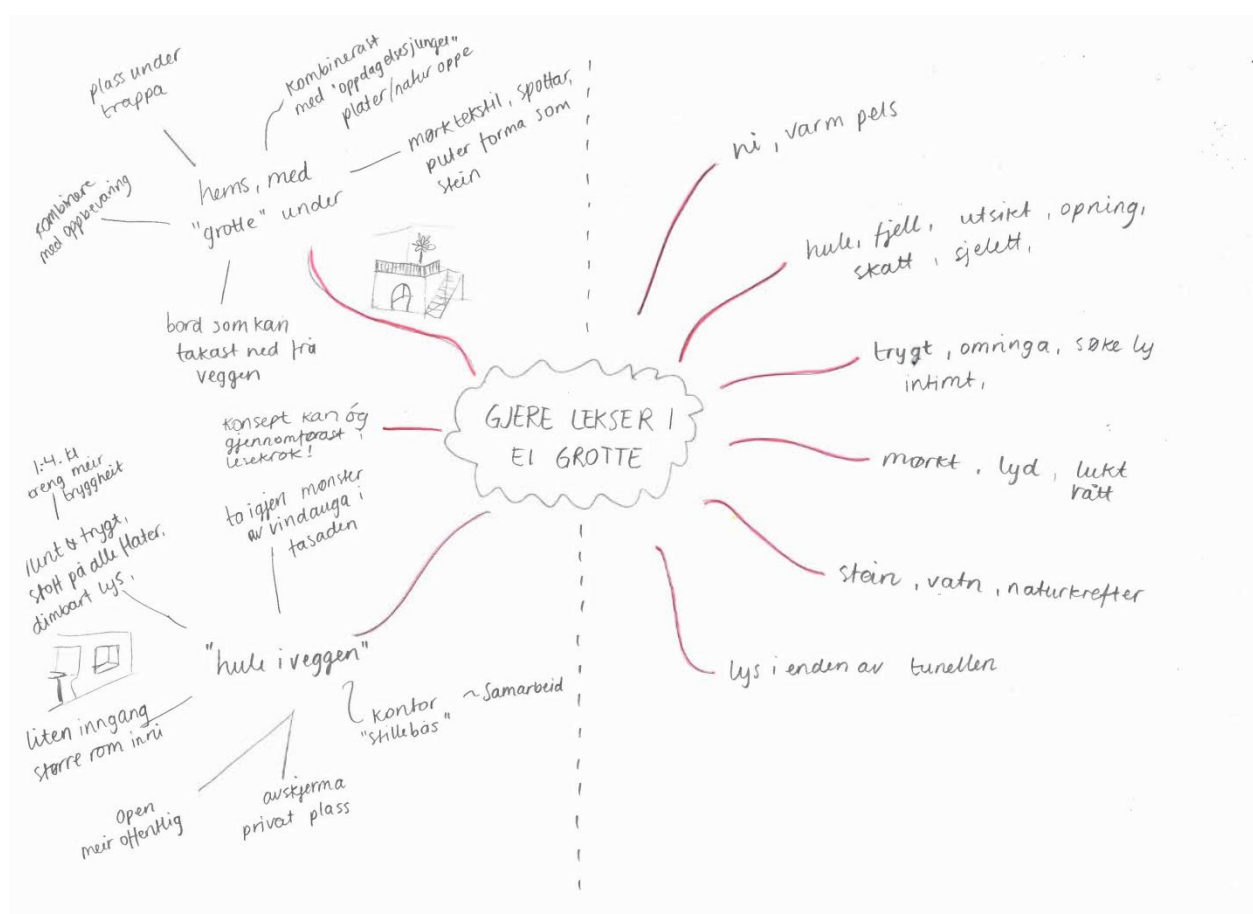 plass under
trappa
kombinerast
med "oppdagelsesjungel"
plater/natur oppe
mørk tekstil, spottar,
puter forma som
stein
hems, med
"grotte" under
kombinere
med oppbevaring
bord som kan
takast ned frå
veggen
GJERE LEKSER I
EI GROTTE
konsept kan óg
gjennomførast i
lesekrok!
1.-4. kl
treng meir
tryggheit
lunt & trygt,
stoff på alle flater,
dimbart lys.
ta igjen mønster
av vindauga i
fasaden
"hule i veggen"
liten inngang
større rom inni
kontor
"stillebås"
~ samarbeid
open
meir offentlig
avskjerma
privat plass
hi, varm pels
hule, fjell, utsikt, opning,
skatt, sjelett,
trygt, omringa, søke ly
intimt,
mørkt, lyd, lukt
rått
stein, vatn, naturkrefter
lys i enden av tunellen